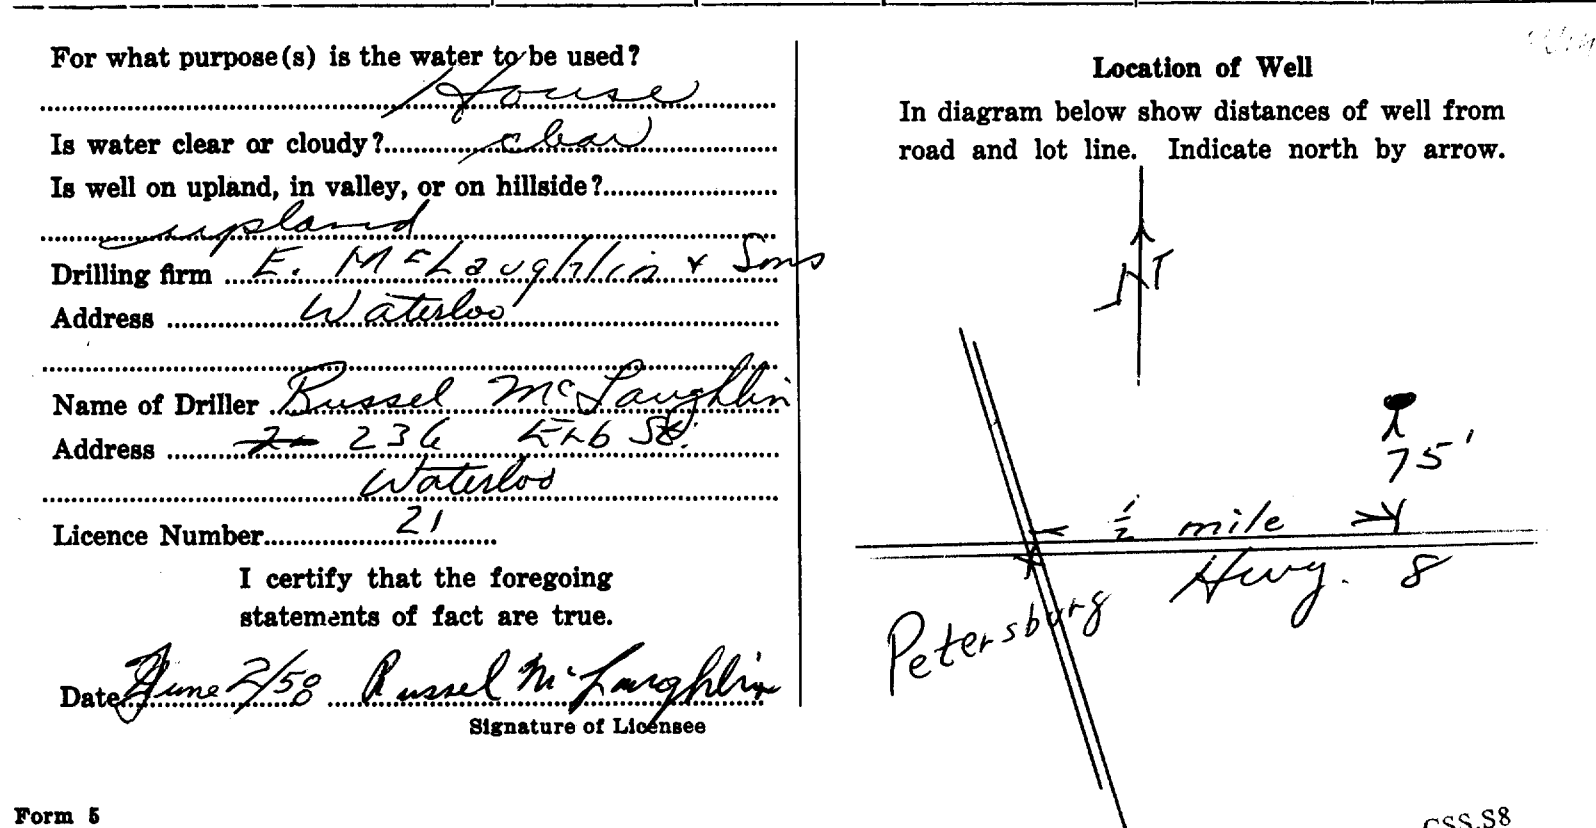 For what purpose(s) is the water to be used?
House
Is water clear or cloudy? clear
Is well on upland, in valley, or on hillside?
upland
Drilling firm E. McLaughlin & Sons
Address Waterloo
Name of Driller Russel McLaughlin
Address 236 Erb St.
Waterloo
Licence Number 21
I certify that the foregoing
statements of fact are true.
Date June 2/58 Russel McLaughlin
Signature of Licensee
Form 5
Location of Well
In diagram below show distances of well from
road and lot line. Indicate north by arrow.
N
75'
1/2 mile
Hwy. 8
Petersburg
CSS.S8